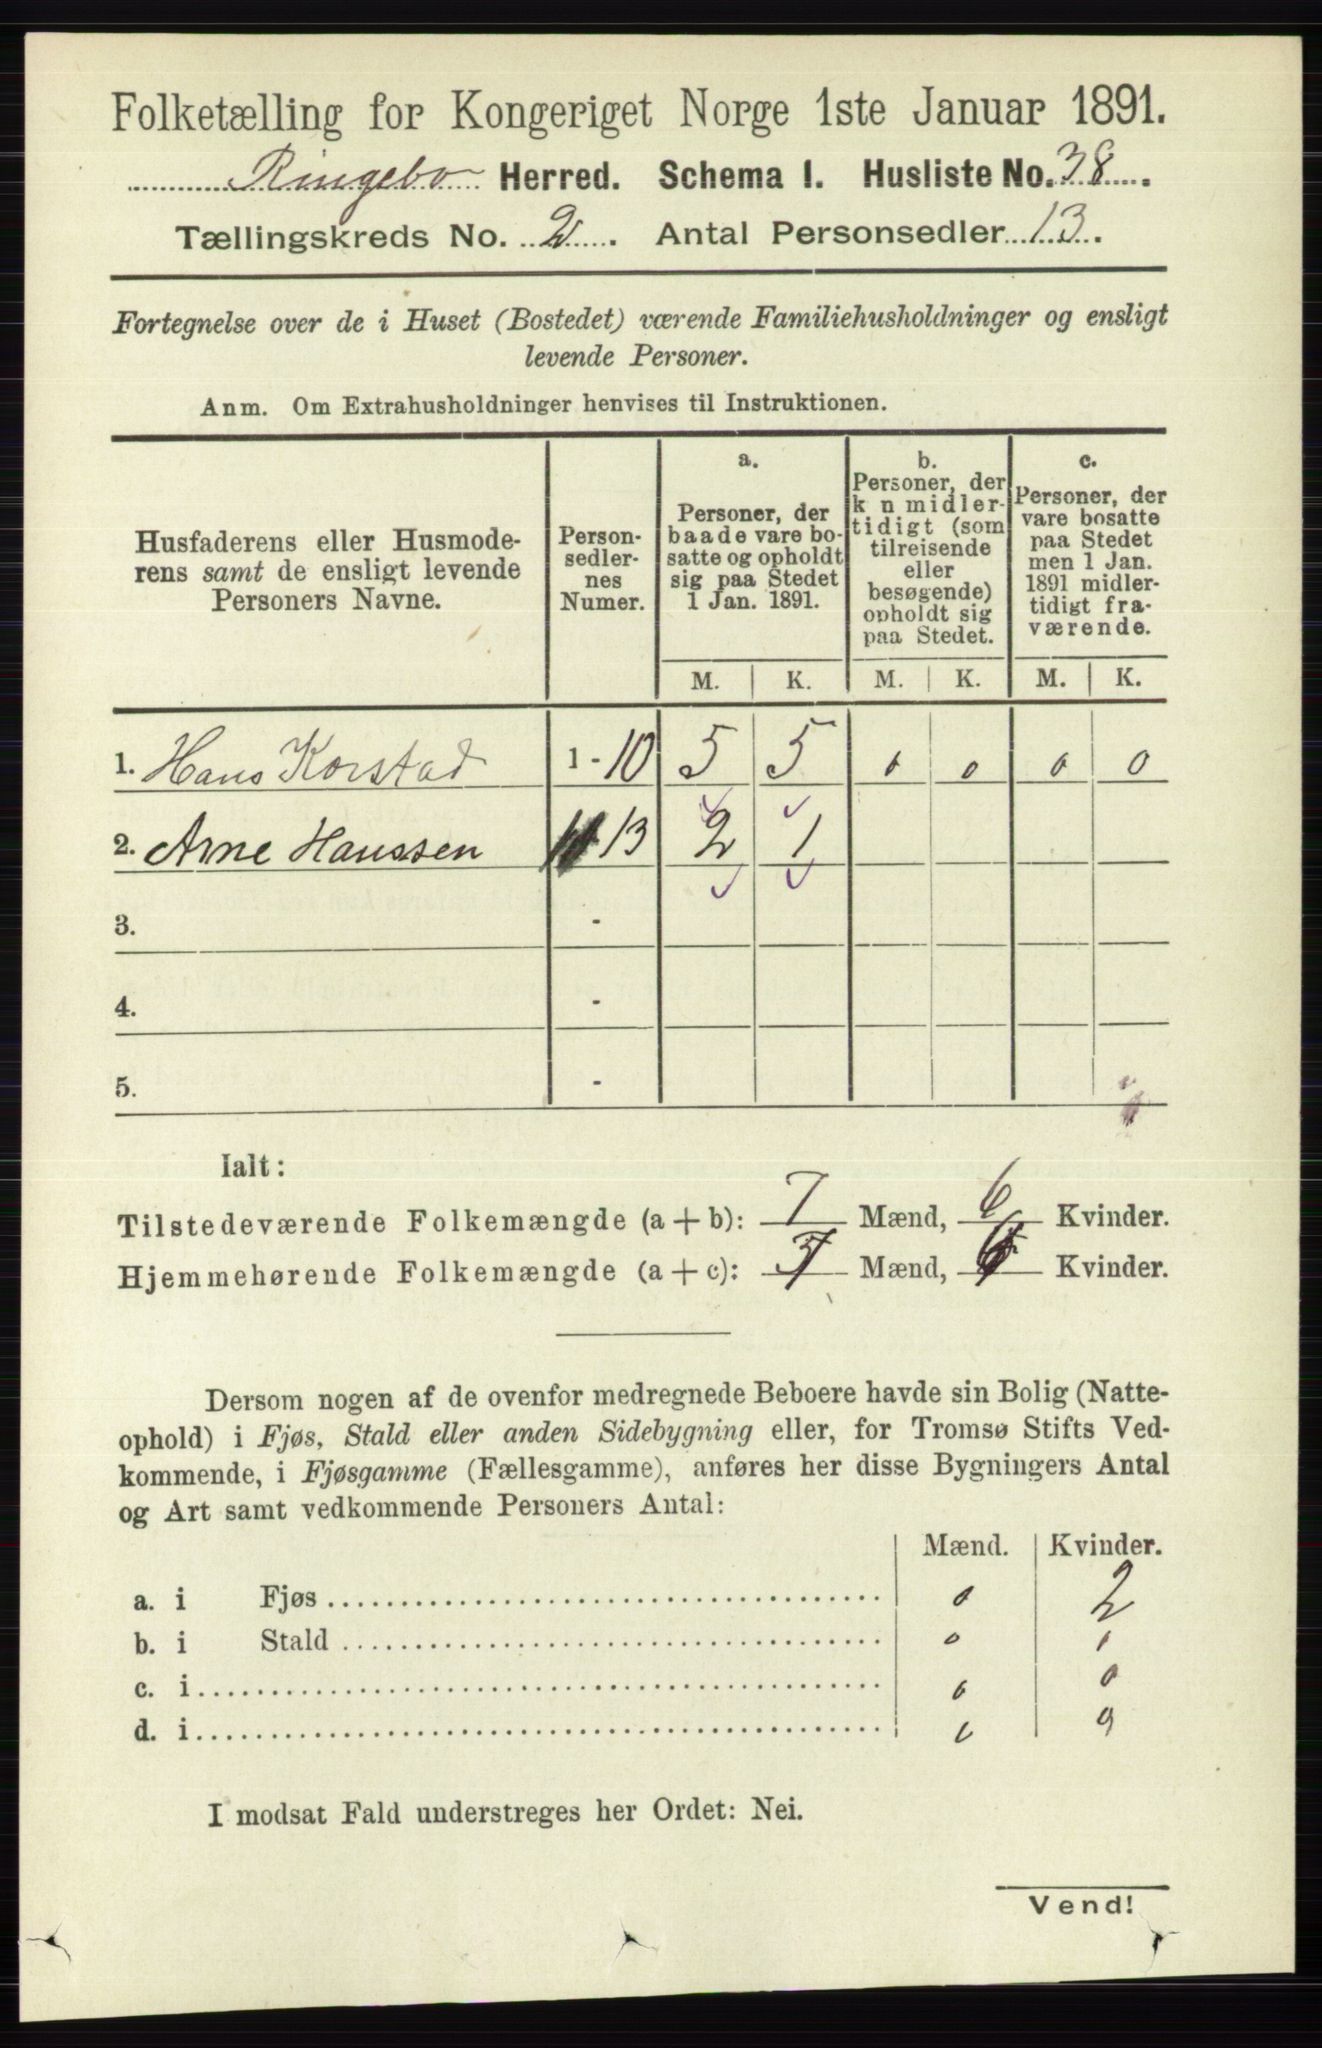 Folketælling for Kongeriget Norge 1ste Januar 1891.
Ringebo Herred. Schema 1. Husliste No. 38.
Tællingskreds No. 2. Antal Personsedler 13.
Fortegnelse over de i Huset (Bostedet) værende Familiehusholdninger og ensligt
levende Personer.
Anm. Om Extrahusholdninger henvises til Instruktionen.
Husfaderens eller Husmode-
rens samt de ensligt levende
Personers Navne.
Person-
sedler-
nes
Numer.
a.
Personer, der
baade vare bo-
satte og opholdt
sig paa Stedet
1 Jan. 1891.
b.
Personer, der
k n midler-
tidigt (som
tilreisende
eller
besøgende)
opholdt sig
paa Stedet.
c.
Personer, der
vare bosatte
paa Stedet
men 1 Jan.
1891 midler-
tidigt fra-
værende.
M. K. M. K. M. K.
1. Hans Korstad 1 - 10 5 5 0 0 0 0
2. Arne Hanssen 11 13 2 1
3. -
4. -
5. -
Ialt:
Tilstedeværende Folkemængde (a + b): 7 Mænd, 6 Kvinder.
Hjemmehørende Folkemængde (a + c): 7 Mænd, 6 Kvinder.
Dersom nogen af de ovenfor medregnede Beboere havde sin Bolig (Natte-
ophold) i Fjøs, Stald eller anden Sidebygning eller, for Tromsø Stifts Ved-
kommende, i Fjøsgamme (Fællesgamme), anføres her disse Bygningers Antal
og Art samt vedkommende Personers Antal:
Mænd. Kvinder.
a. i Fjøs 0 2
b. i Stald 0 0
c. i 0 0
d. i 0 0
I modsat Fald understreges her Ordet: Nei.
Vend!